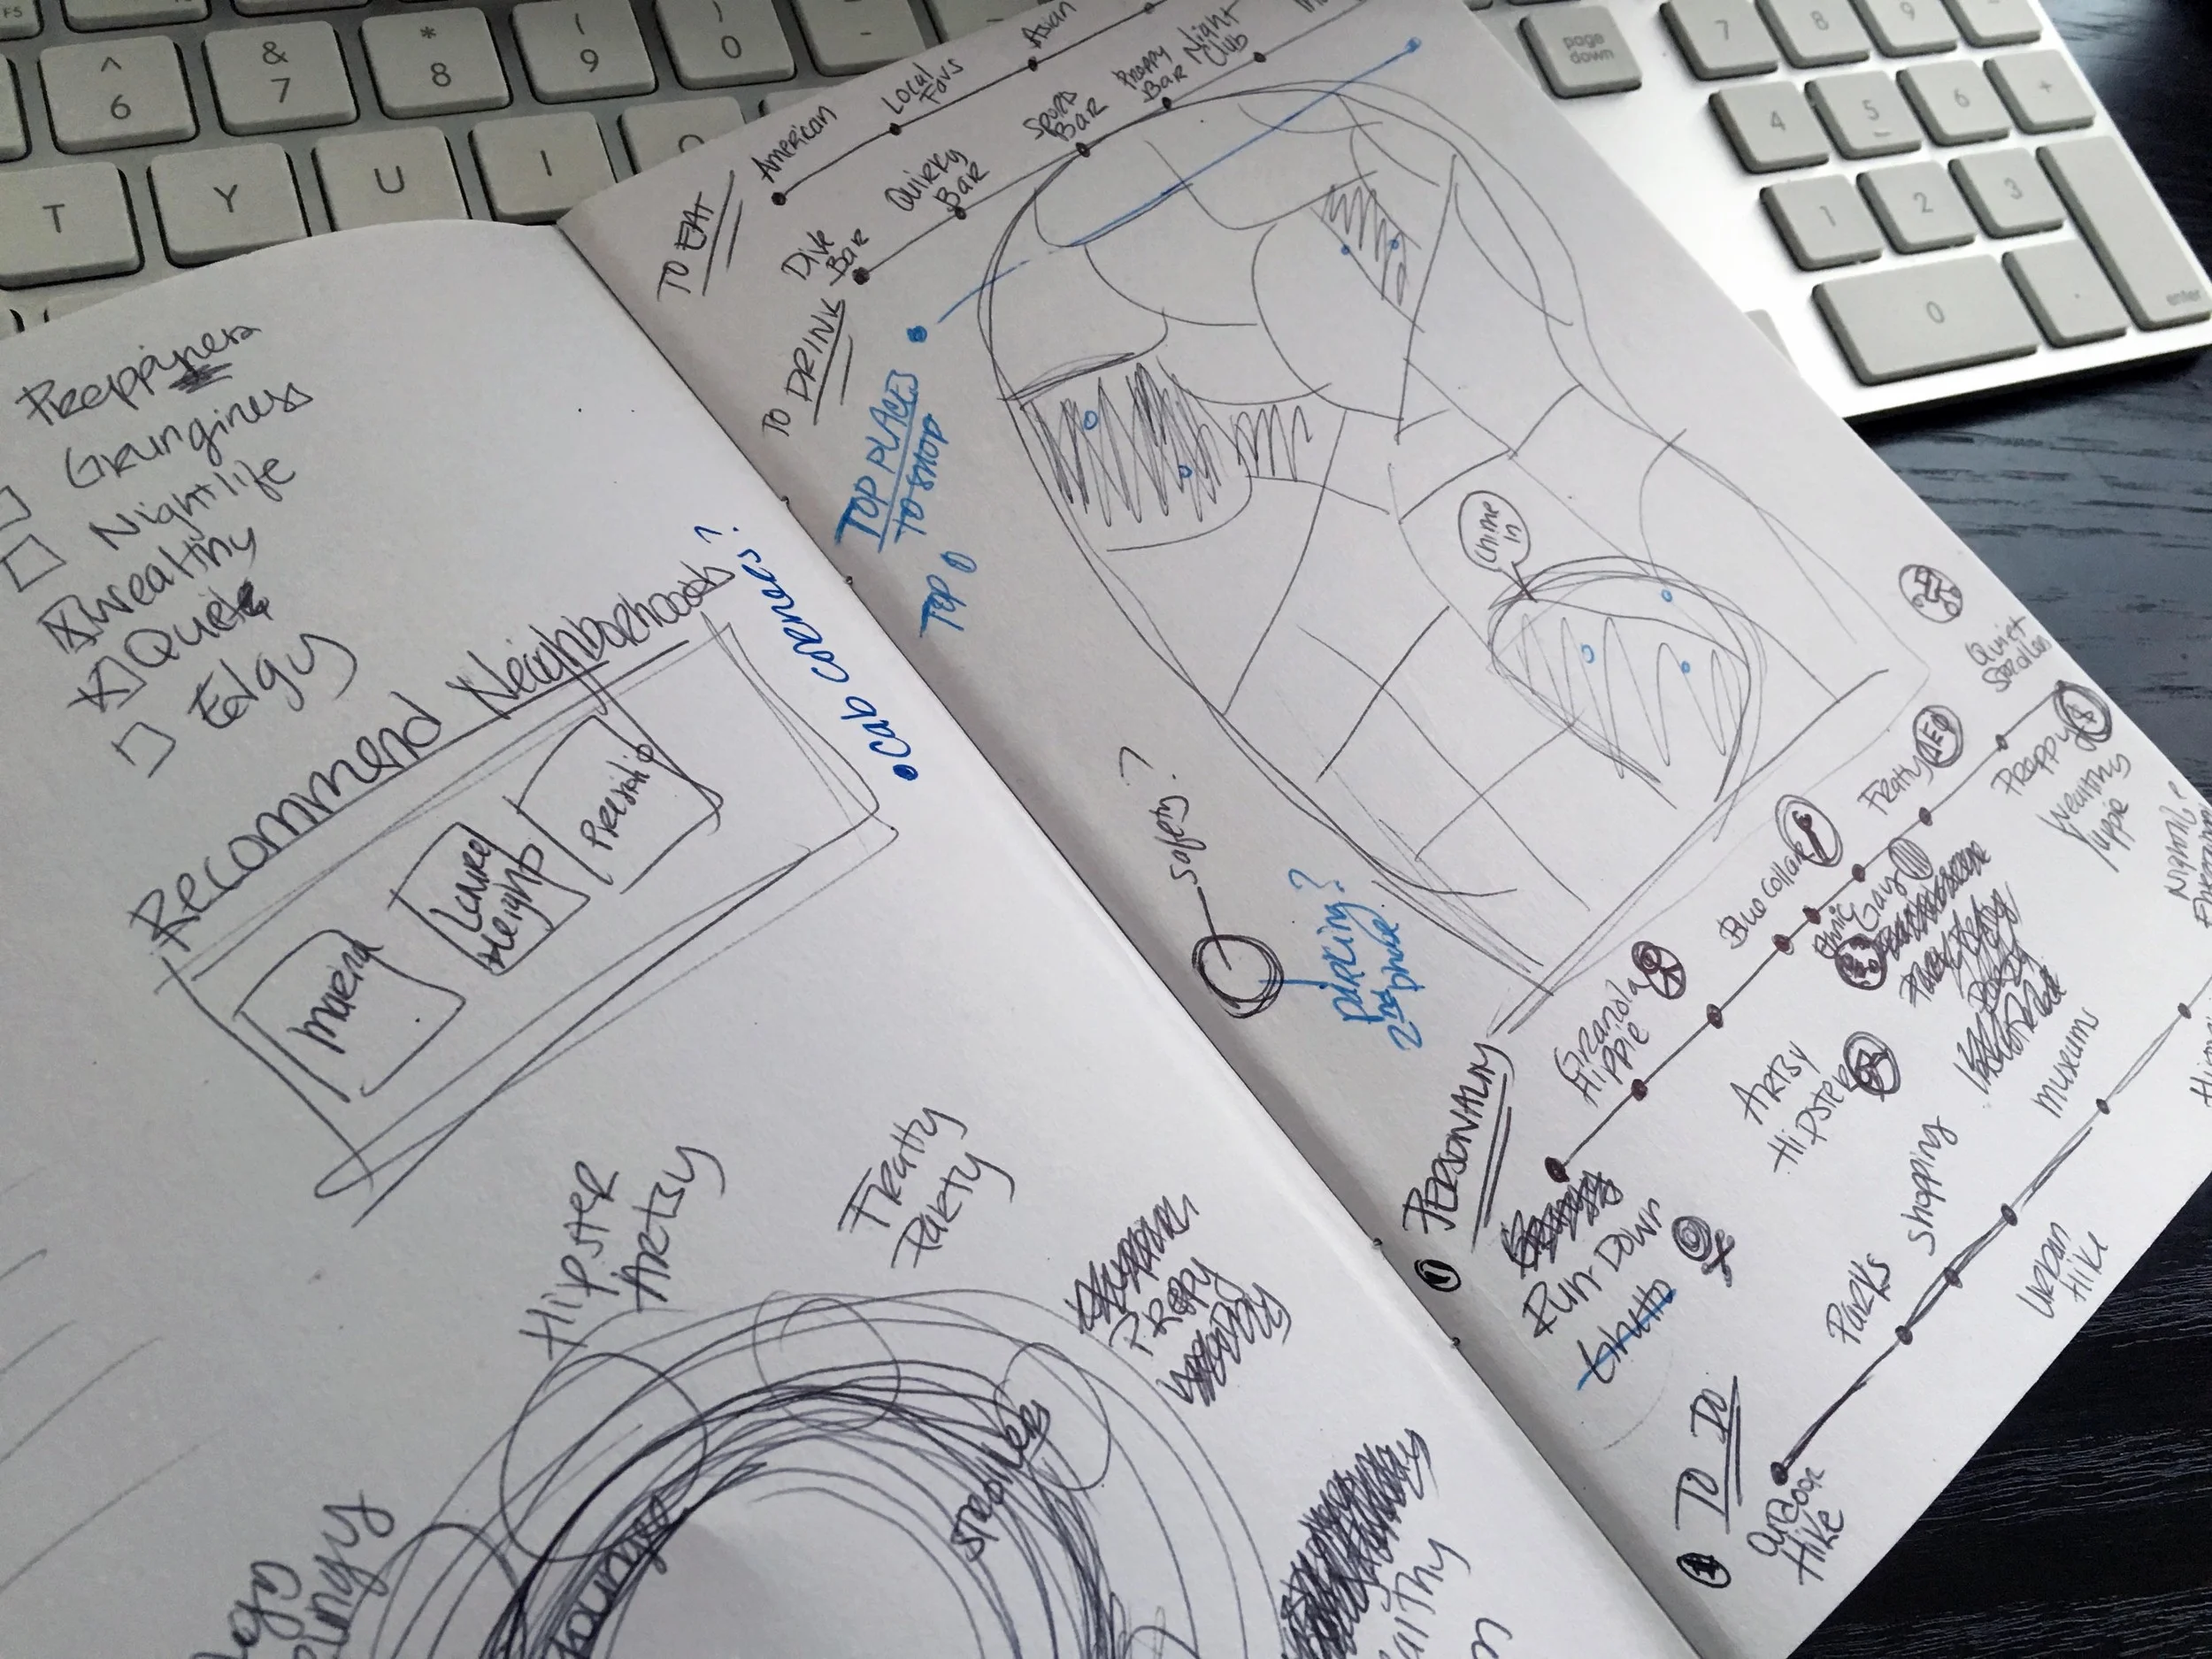 F5
^
6
&
7
*
8
(
9
)
0
-
T
Y
U
I
O
page
down
7
8
9
4
5
6
+
1
2
3
0
.
enter
Preppyness
Grunginess
Nightlife
Wealthy
Quiet
Edgy
Recommend Neighborhoods?
Marina
Laurel
Heights
Presidio
Hipster
Artsy
Fratty
Party
Preppy
Strollers
Young
TO EAT
American
Local
Favs
Asian
TO DRINK
Dive
Bar
Quirky
Bar
Sports
Bar
Preppy
Bar
Night
Club
TOP PLACES
TO SHOP
TOP
• Cab Corners?
Chime
in
Safety?
parking?
2nd phase
1 PERSONALITY
Run-Down
Ghetto
Granola
Hippie
Artsy
Hipster
Blue Collar
Ethnic
Gay
Fratty
Preppy
Wealthy
Yuppie
Quiet
Strollers
TO DO
Outdoor
Hike
Parks
Shopping
Urban
Hike
Museums